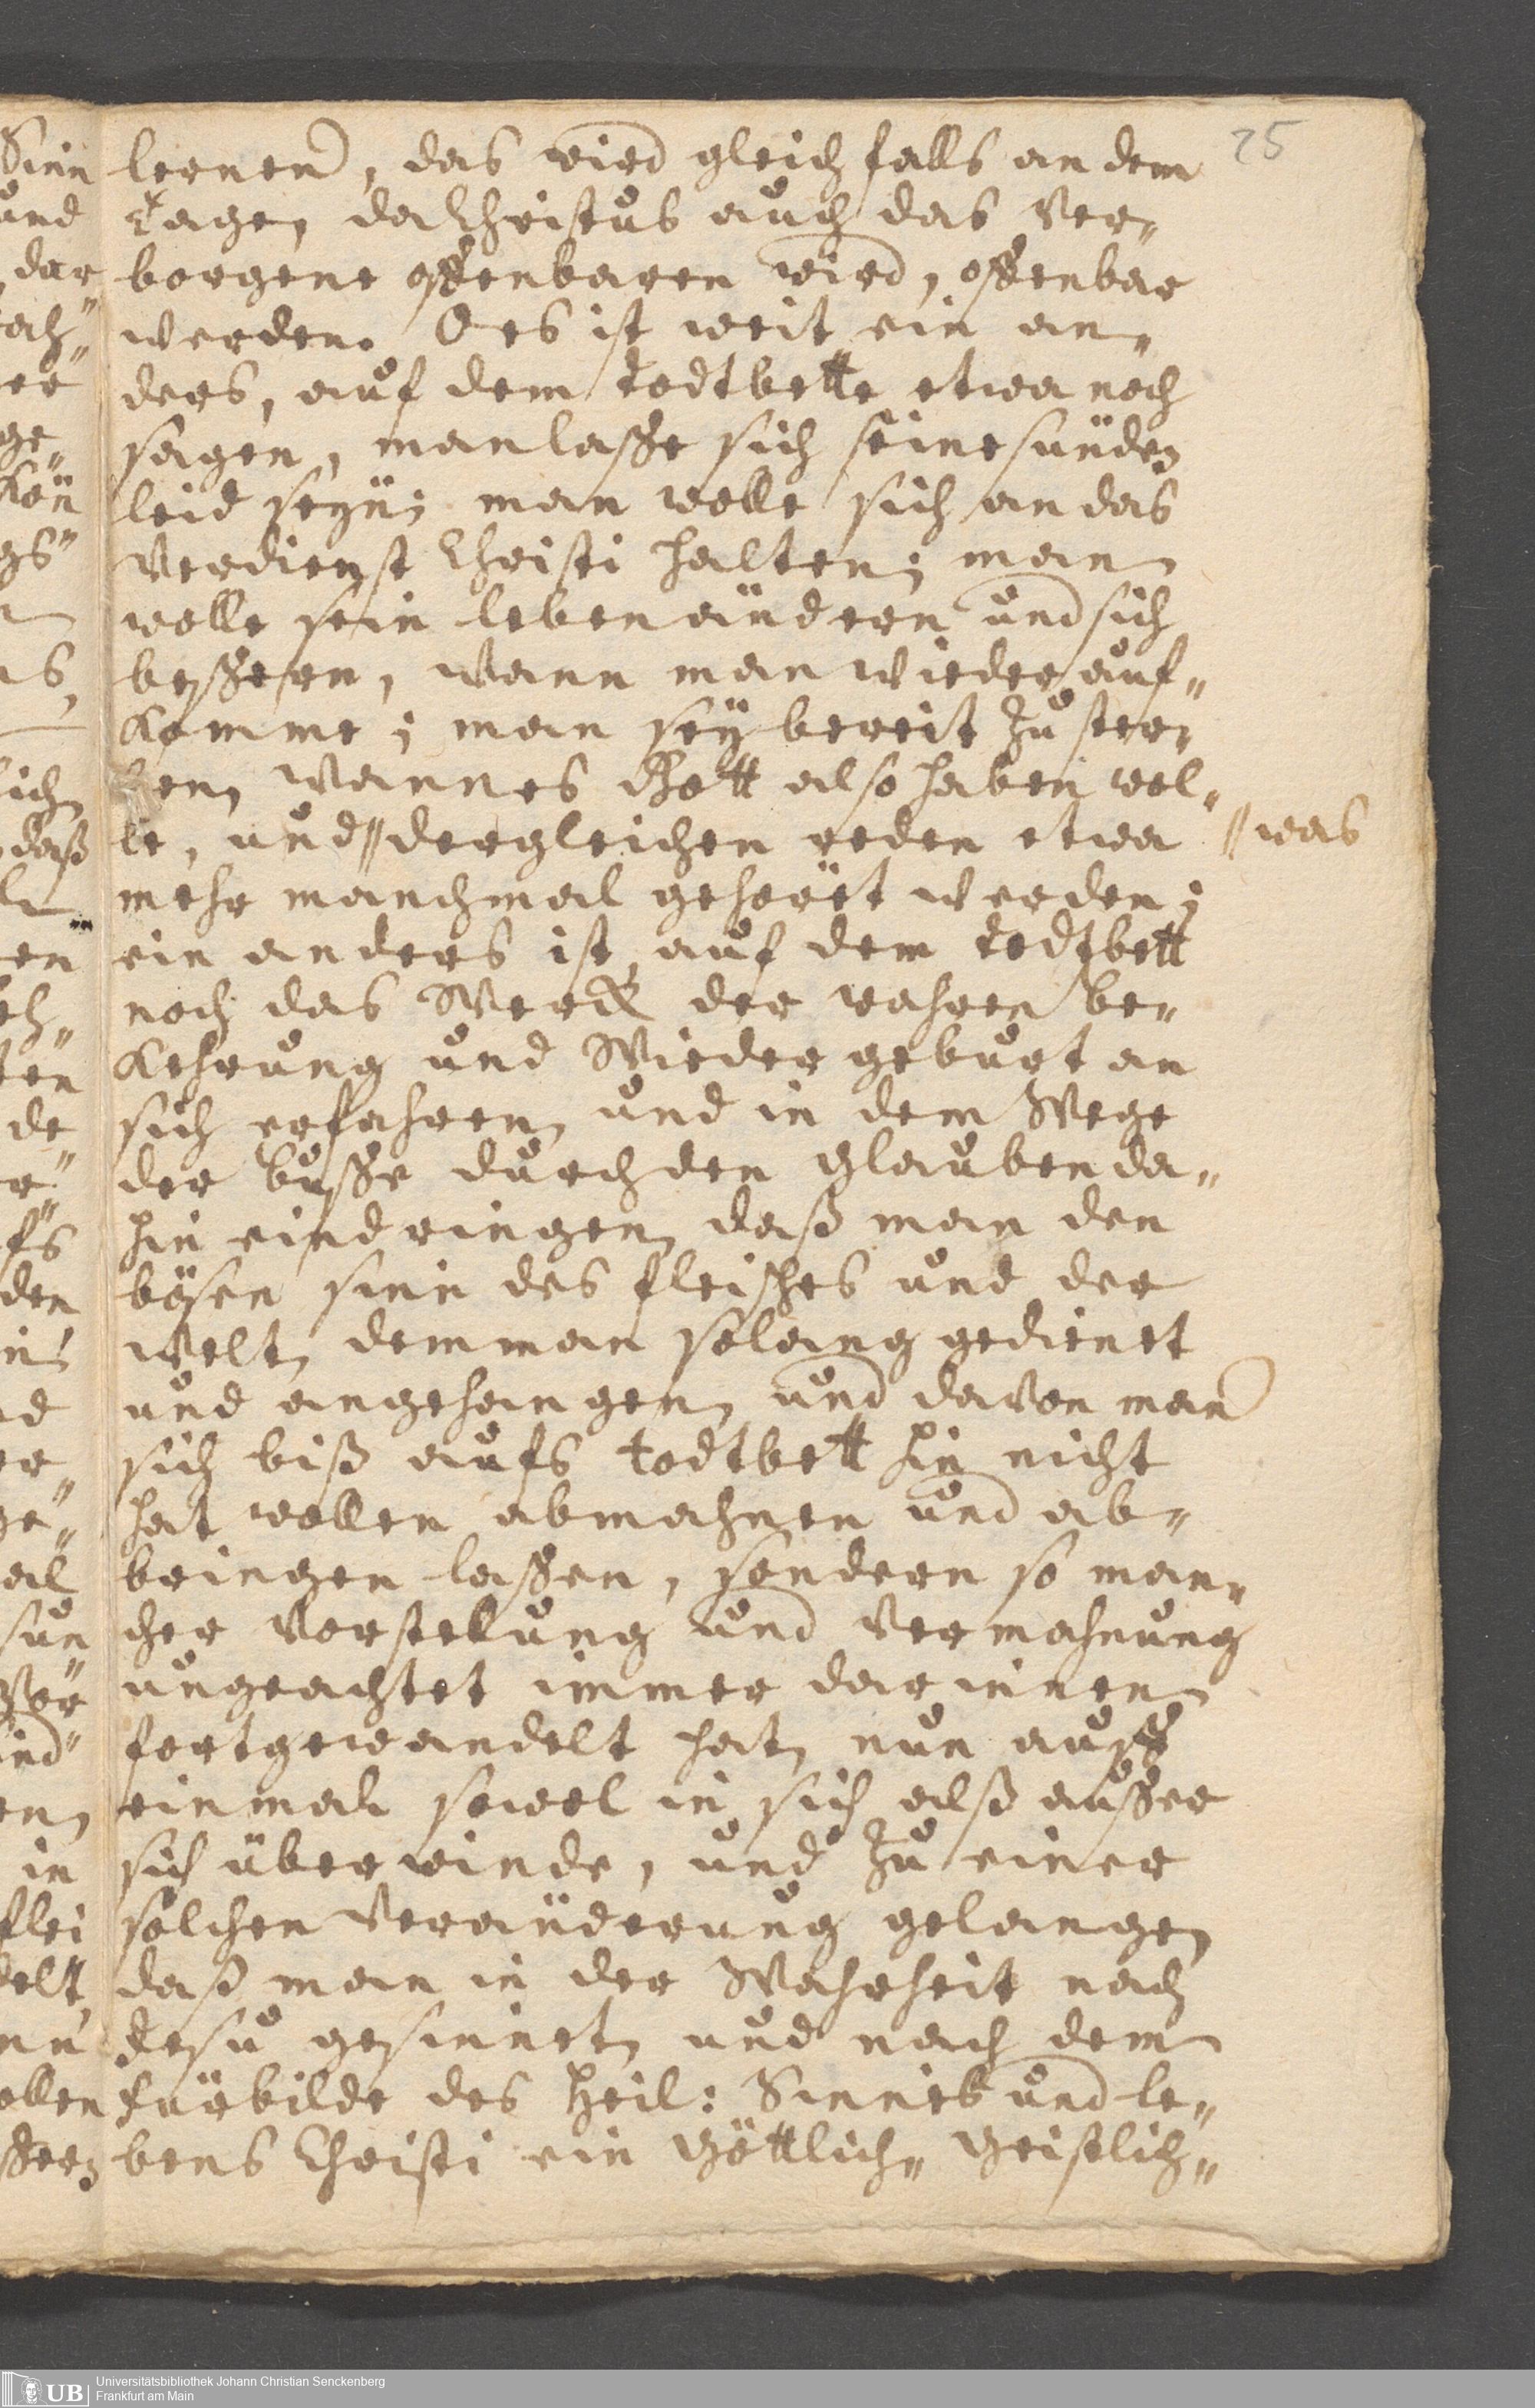 25
lernen, das wird gleich falls an dem
Tage, da Christus auch das Ver„
borgene offenbaren wird, offenbar
werden. O es ist weit ein an„
ders, auf dem todtbette etwa noch
sagen, man laße sich seine sünden
leid seyn; man wolle sich an das
Verdienst Christi halten; man
wolle sein leben ändern und sich
beßern, wann man wieder auf„
komme; man sey bereit zu ster„
ben, wann es Gott also haben wol„
le, und // dergleichen reden etwa // was
mehr manchmal gehöret werden;
ein anders ist, auf dem todtbett
noch das Werck der wahren be„
kehrung und Wiedergeburt an
sich erfahren, und in dem Wege
der buße durch den glauben da„
hin eindringen, daß man den
bösen sinn des fleisches und der
welt, dem man solang gedienet
und angehangen, und davon man
sich biß aufs todtbett hin nicht
hat wollen abmahnen und ab„
bringen laßen, sondern so man„
cher Vorstellung und Vermahnung
ungeachtet immer darinnen
fortgewandelt hat, nun auff
einmal sowol in sich alß außer
sich überwinde, und zu einer
solchen Veränderung gelange,
daß man in der Wahrheit nach
Jesu gesinnet, und nach dem
fürbilde des Heil: Sinnes und le„
bens Christi ein göttlich„ geistlich„
Universitätsbibliothek Johann Christian Senckenberg
UB
Frankfurt am Main